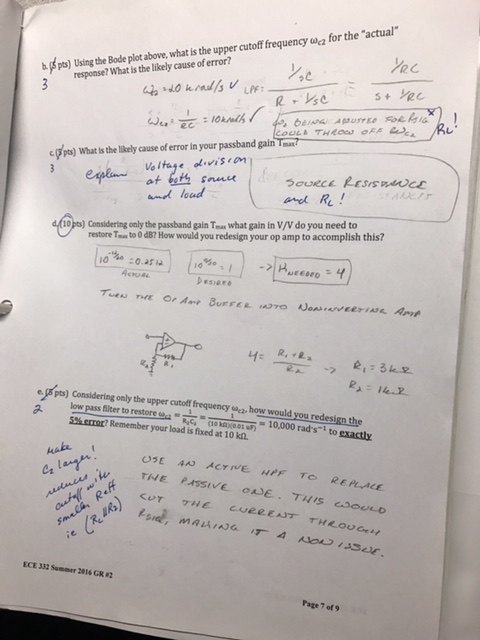 b. (5 pts) Using the Bode plot above, what is the upper cutoff frequency ωc2 for the "actual"
response? What is the likely cause of error?
3
LPF: 1/sC / R + 1/sC = 1/RC / s + 1/RC
ωc2 = 1/RC = 10krad/s ✓
BEING ADJUSTED FOR
COULD THROW OFF
RL!
c. (3 pts) What is the likely cause of error in your passband gain Tmax?
3
explain
Voltage division
at both source
and load
SOURCE RESISTANCE
and RL!
d. (10 pts) Considering only the passband gain Tmax what gain in V/V do you need to
restore Tmax to 0 dB? How would you redesign your op amp to accomplish this?
= 0.2512
ACTUAL
= 1
DESIRED
-> KNEEDED = 4
TURN THE OP AMP BUFFER INTO NONINVERTING AMP
R2
R1
4 = R1 + R2 / R2 -> R1 = 3kΩ
R2 = 1kΩ
e. (5 pts) Considering only the upper cutoff frequency ωc2, how would you redesign the
2
low pass filter to restore ωc2 = 1/R2C2 = 1/(10 kΩ)(0.01 uF) = 10,000 rad·s⁻¹ to exactly
5% error? Remember your load is fixed at 10 kΩ.
make
C2 larger!
reduces
cutoff with
smaller Reff
ie (RL||R2)
USE AN ACTIVE HPF TO REPLACE
THE PASSIVE ONE. THIS WOULD
CUT THE CURRENT THROUGH
RSIG, MAKING IT A NON ISSUE.
ECE 332 Summer 2016 GR #2
Page 7 of 9